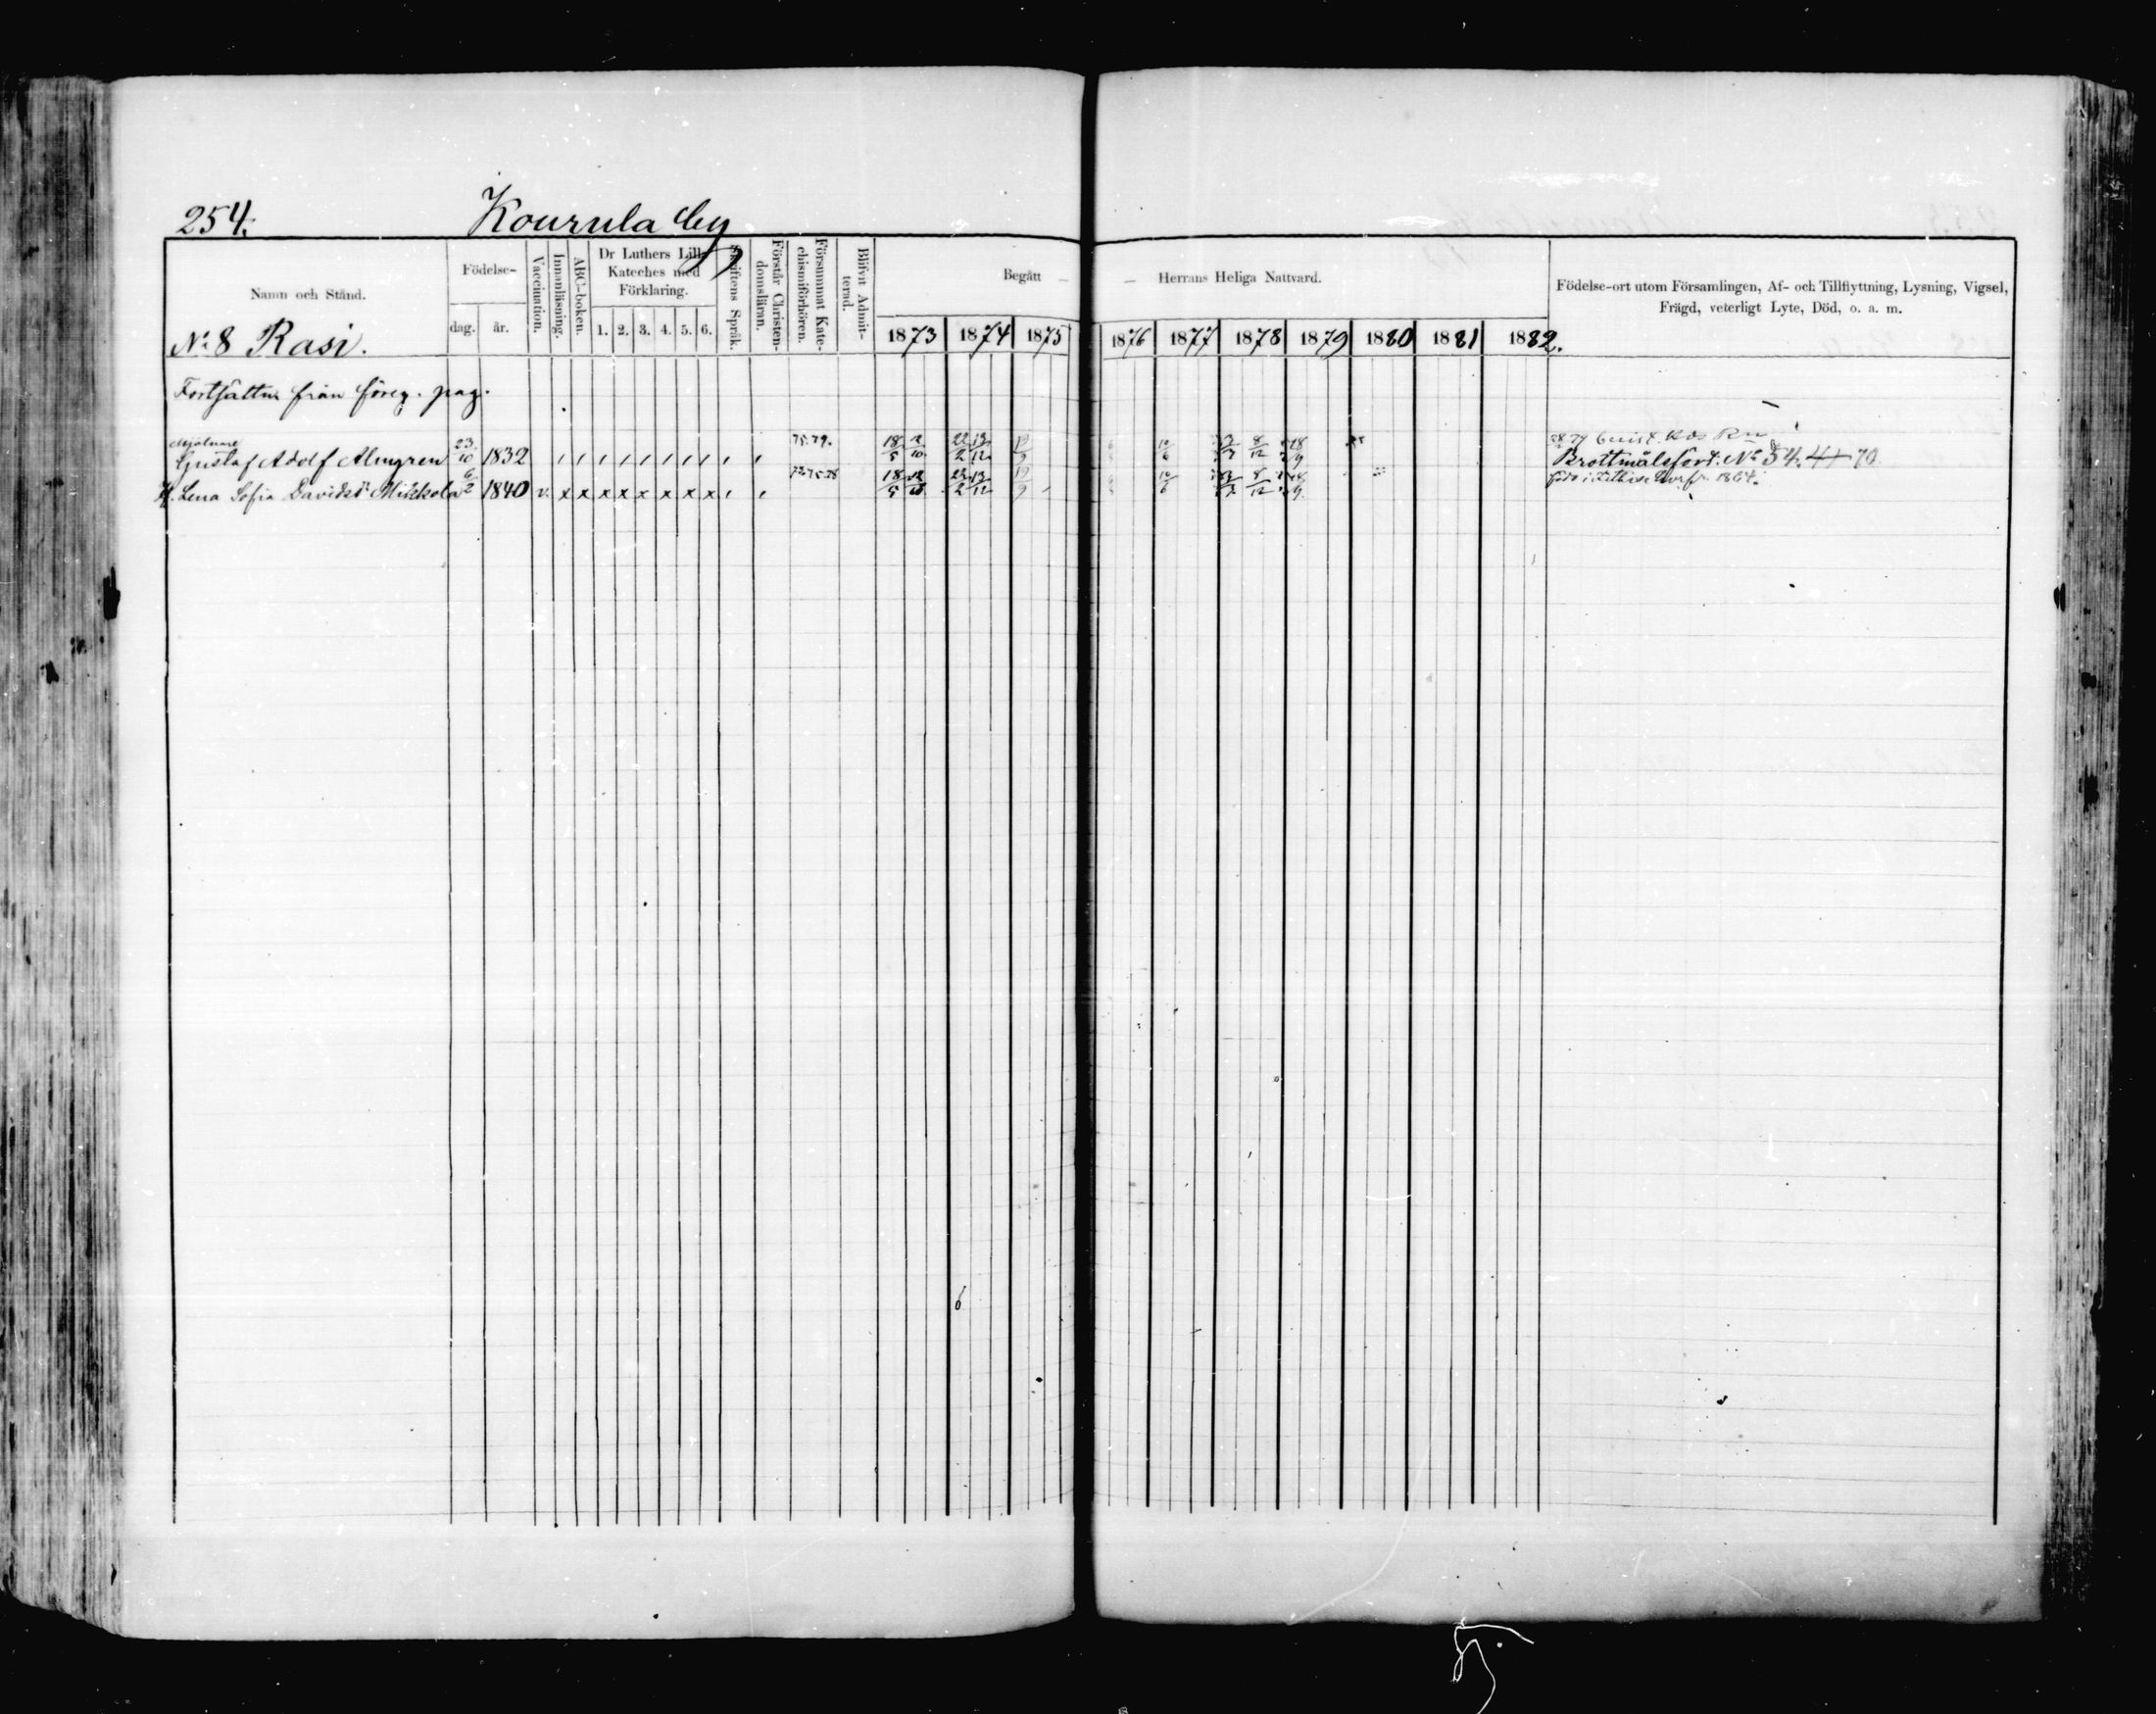 254.
Kourula by
Namn och Stånd.
Födelse-
dag.
år.
Vaccination.
Innanläsning.
ABC-boken.
Dr Luthers Lilla
Kateches med
Förklaring.
1. 2. 3. 4. 5. 6.
Skriftens Språk.
Förstår Christen-
domsläran.
Försummat Kate-
chismiförhören.
Blifvit Admit-
terad.
Begått —
— Herrans Heliga Nattvard.
1873 1874 1875
1876 1877 1878 1879 1880 1881 1882.
Födelse-ort utom Församlingen, Af- och Tillflyttning, Lysning, Vigsel,
Frägd, veterligt Lyte, Död, o. a. m.
No 8 Rasi.
Fortsättn. från föreg. pag.
Mjölnare
Gustaf Adolf Almgren 23/10 1832 75.79. 18/5 12/10 22/2 13/12
Brottmålsfört. No 54. 41 70
H. Lena Sofia Davidsd. Mikkola 6/2 1840 v. x x x x x x x x 18/5 12/10 22/2 13/12